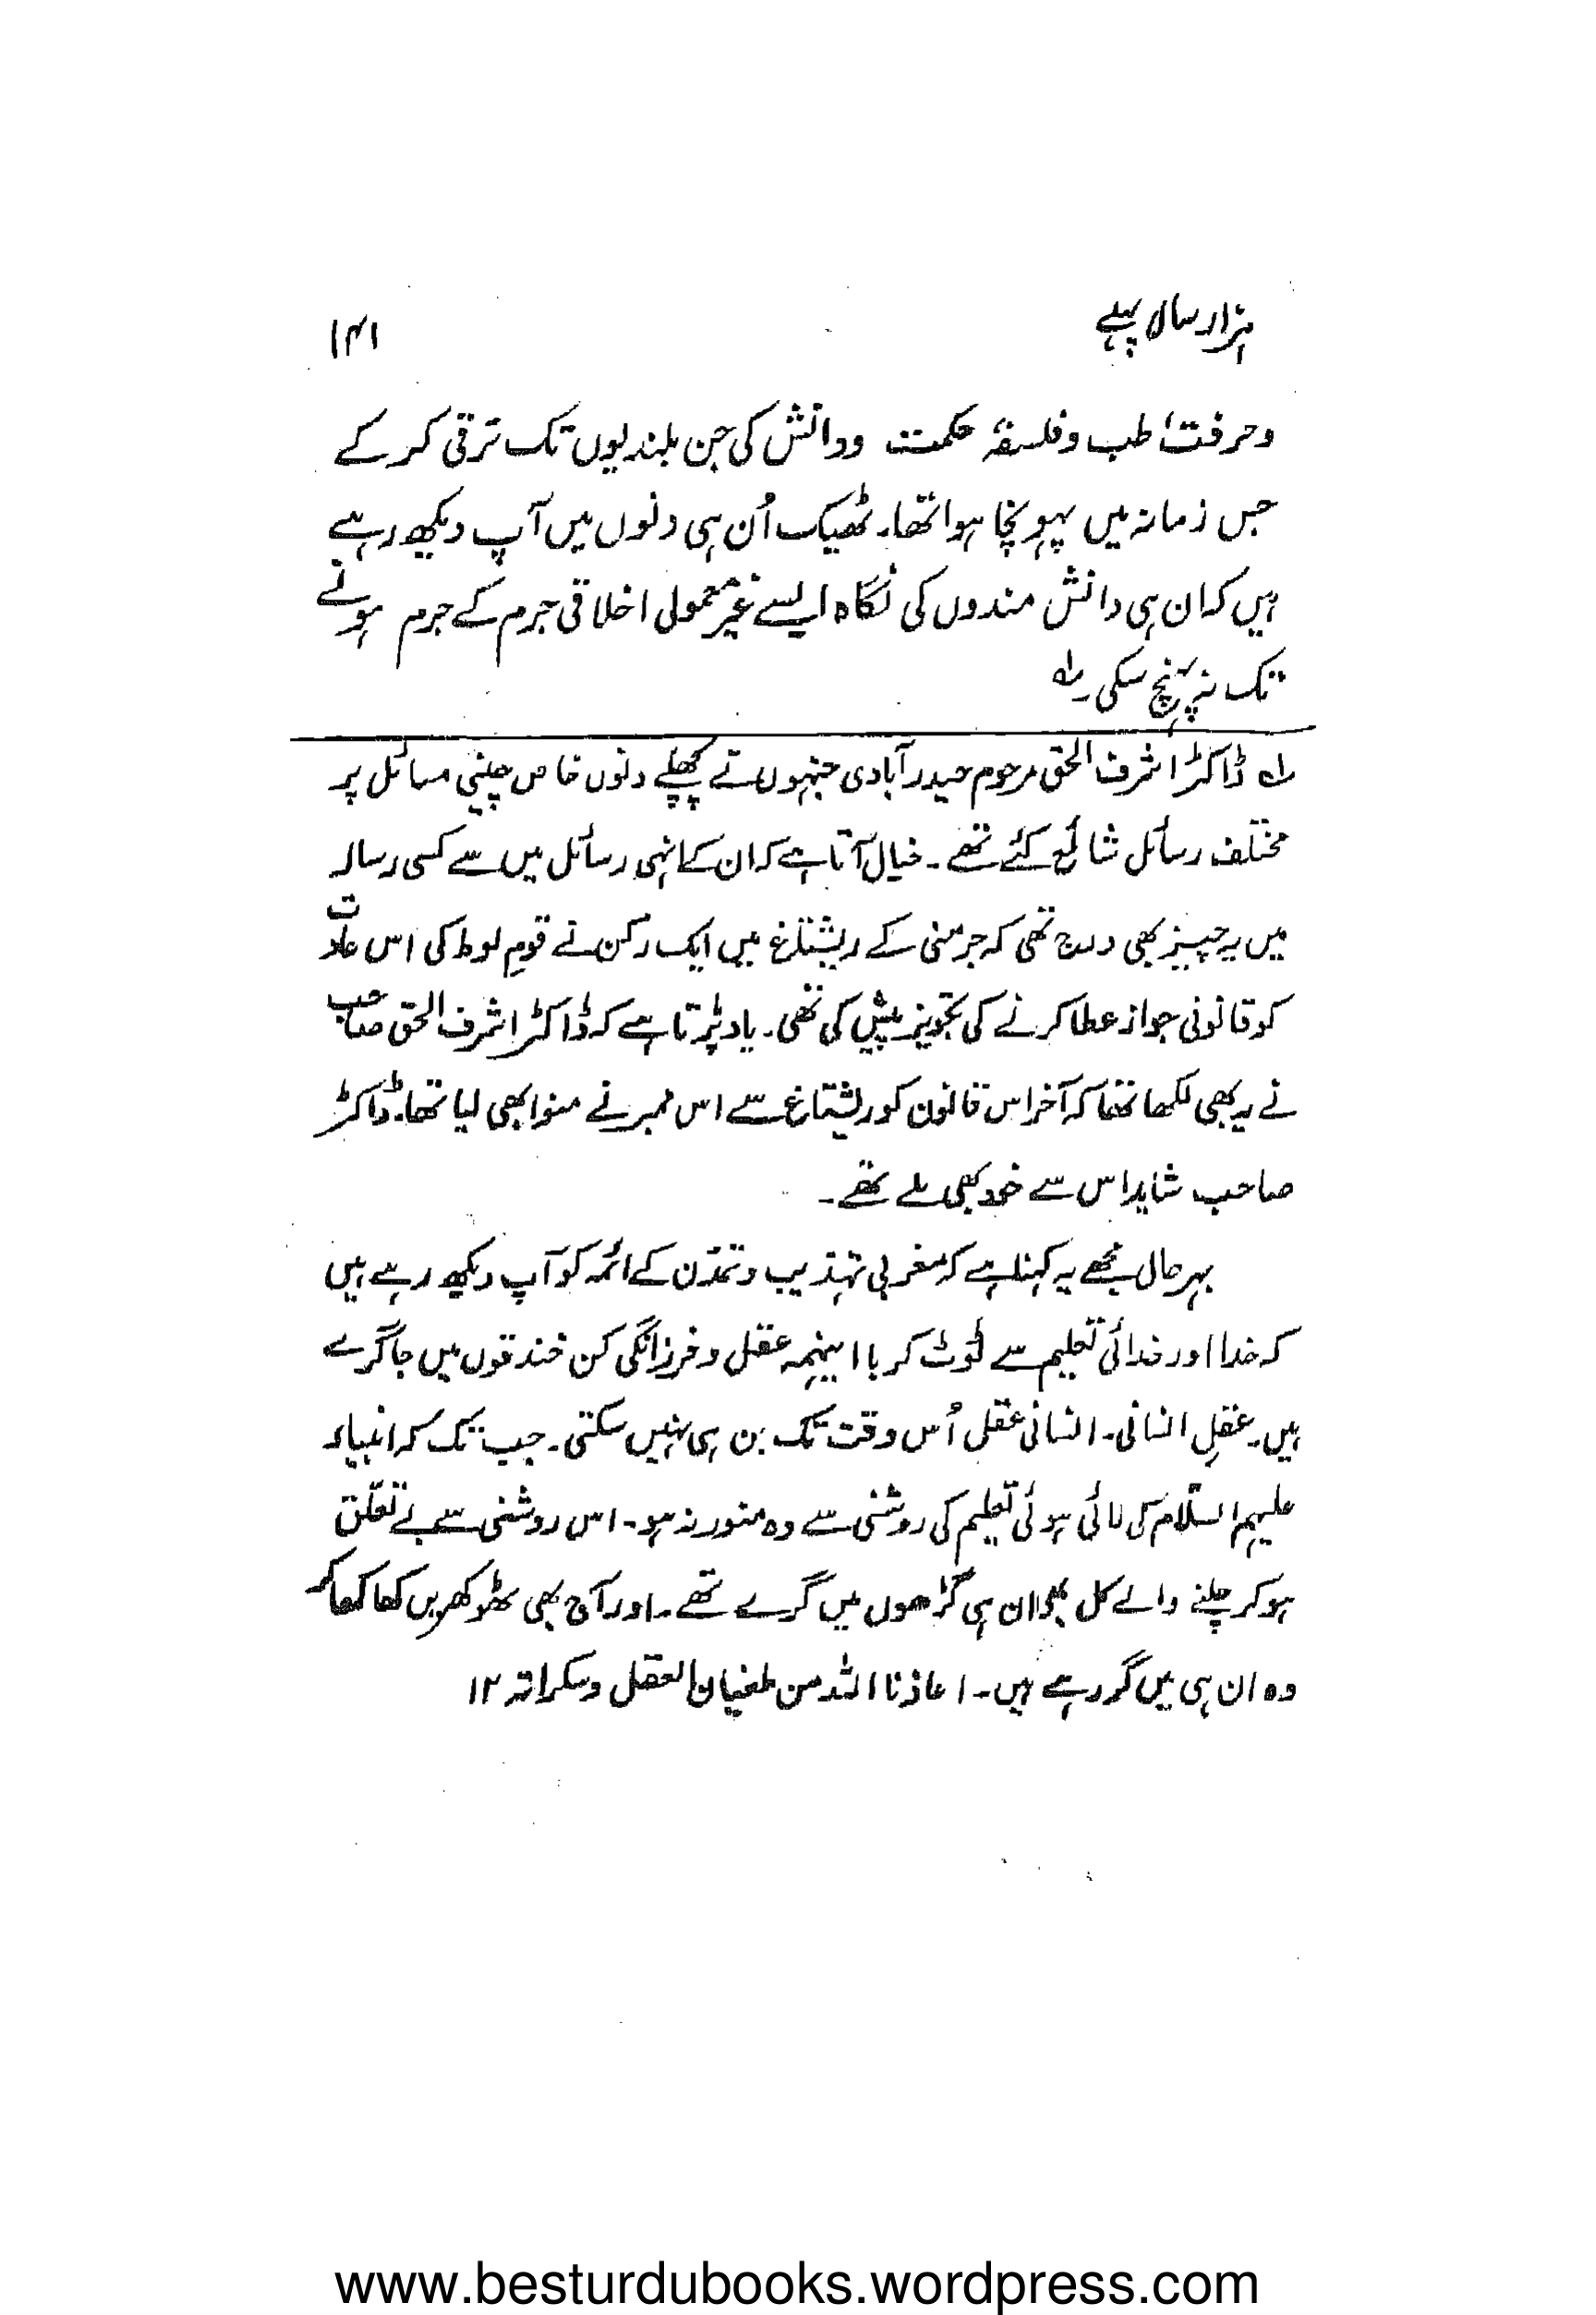 ہزار سال پہلے
۱۴۱
وحرفت، طب وفلسفہ حکمت ودانش کی جن بلندیوں تک ترقی کر کے
جس زمانہ میں پہونچا ہوا تھا۔ ٹھیک اُن ہی دنوں میں آپ دیکھ رہے
ہیں کہ ان ہی دانش مندوں کی نگاہ ایسے غیر معمولی اخلاقی جرم کے جرم ہونے
تک نہ پہنچ سکی۔ لہ
لہ ڈاکٹر اشرف الحق مرحوم حیدرآبادی جنہوں نے پچھلے دنوں خاص جنسی مسائل پر
مختلف رسائل شائع کئے تھے۔ خیال آتا ہے کہ ان کے انہی رسائل میں سے کسی رسالہ
میں یہ چیز بھی درج تھی کہ جرمنی کے ریشتاغ میں ایک رکن نے قومِ لوط کی اس عادت
کو قانونی جواز عطا کرنے کی تجویز پیش کی تھی۔ یاد پڑتا ہے کہ ڈاکٹر اشرف الحق صاحب
نے یہ بھی لکھا تھا کہ آخر اس قانون کو ریشتاغ سے اس ممبر نے منوا بھی لیا تھا۔ ڈاکٹر
صاحب شاید اس سے خود بھی ملے تھے۔
بہرحال مجھے یہ کہنا ہے کہ مغربی تہذیب وتمدّن کے ائمہ کو آپ دیکھ رہے ہیں
کہ خدا اور خدائی تعلیم سے ٹوٹ کر با اینہمہ عقل وفرزانگی کن خندقوں میں جا گرے
ہیں۔ عقلِ انسانی۔ انسانی عقل اُس وقت تک بن ہی نہیں سکتی۔ جب تک کہ انبیاء
علیہم السّلام کی لائی ہوئی تعلیم کی روشنی سے وہ منور نہ ہو۔ اس روشنی سے بے تعلّق
ہو کر چلنے والے کل بھی ان ہی گڑھوں میں گرے تھے۔ اور آج بھی ٹھوکریں کھا کھا کر
وہ ان ہی میں گر رہے ہیں۔ اعاذنا اللہ من طغیان العقل وسکراتہ ۱۲
www.besturdubooks.wordpress.com